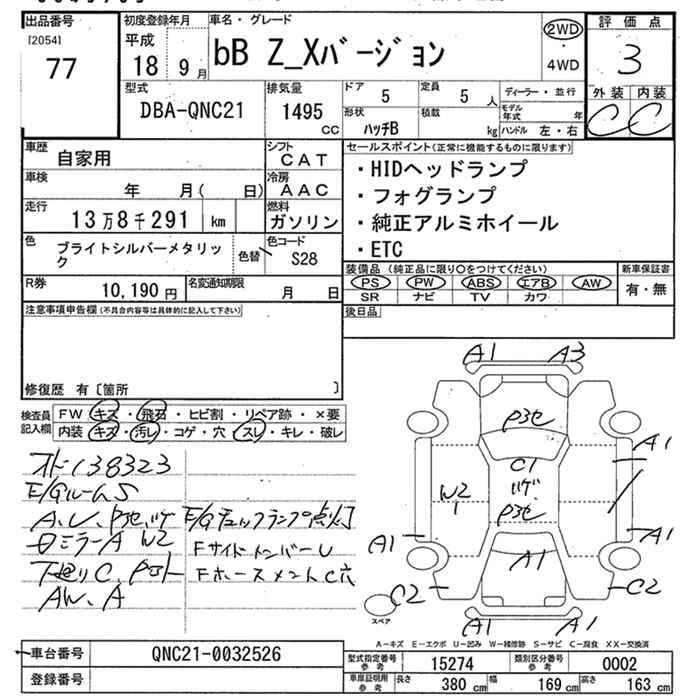 出品番号
[2054]
77
初度登録年月
平成
18 9月
車名・グレード
bB Z_Xバージョン
2WD
・
4WD
評価点
3
外装 内装
C C
型式
DBA-QNC21
排気量
1495
CC
ドア
5
定員
5 人
形状
ハッチB
積載
kg
ディーラー・並行
モデル年式 年
ハンドル 左・右
車歴
自家用
シフト
CAT
車検
年 月( 日)
冷房
AAC
走行
13万8千291 km
燃料
ガソリン
色
ブライトシルバーメタリック
色替
色コード
S28
R券
10,190円
名変通知期限
月 日
セールスポイント(正常に機能するものに限ります)
・HIDヘッドランプ
・フォグランプ
・純正アルミホイール
・ETC
装備品(純正品に限り○をつけてください)
PS PW ABS エアB AW
SR ナビ TV カワ
新車保証書
有・無
後日品
注意事項申告欄(不具合内容等は具体的に記入して下さい)
修復歴 有〔箇所 〕
検査員記入欄
FW キズ・飛石・ヒビ割・リペア跡・×要
内装 キズ・汚レ・コゲ・穴・スレ・キレ・破レ
138323
E/GルームS
E/Gチェックランプ点灯
ミラーA W2
FサイドメンバーU
AW、A
A1 A3
C1
A1
W2
A1
A1 A1
C2 C2
A1 A1
スペア
A-キズ E-エクボ U-凹み W-補修跡 S-サビ C-腐食 XX-交換済
車台番号
QNC21-0032526
登録番号
型式指定番号
参考
15274
類別区分番号
参考
0002
車庫証明用
参考
長さ
380 cm
幅
169 cm
高さ
163 cm